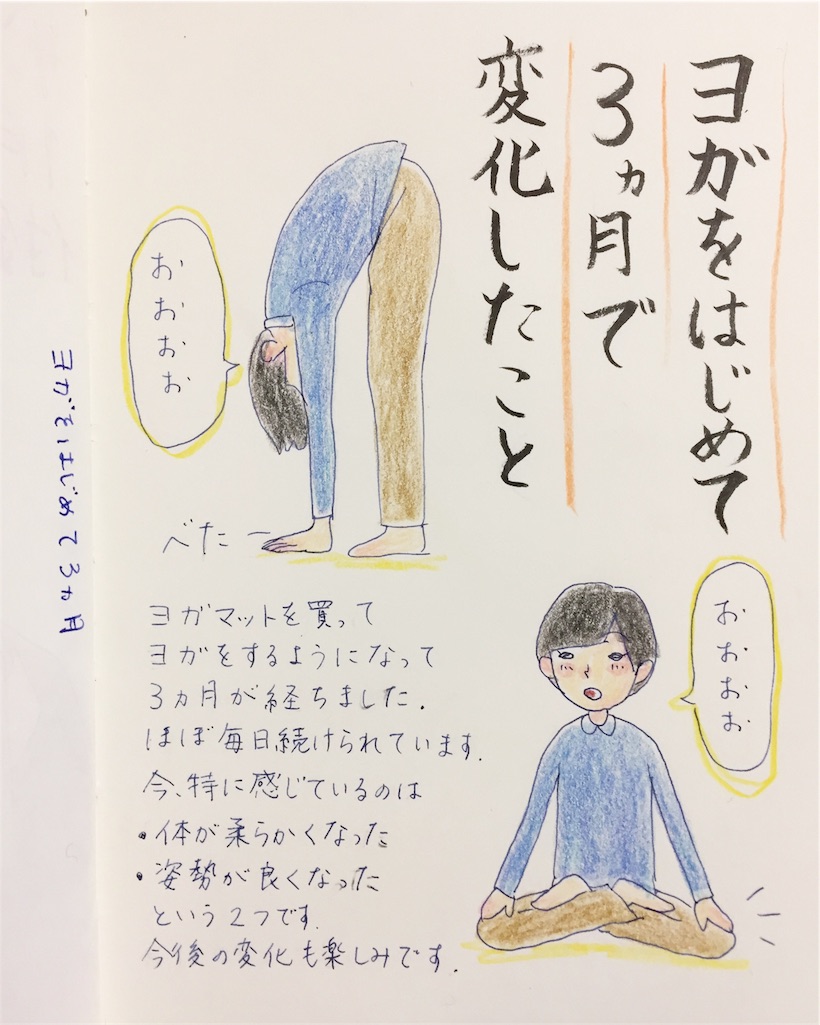 ヨガをはじめて
3ヵ月で
変化したこと
おおおお
べたー
ヨガマットを買って
ヨガをするようになって
3ヵ月が経ちました.
ほぼ毎日続けられています.
今、特に感じているのは
・体が柔らかくなった
・姿勢が良くなった
という2つです.
今後の変化も楽しみです.
おおおお
ヨガをはじめて3ヵ月